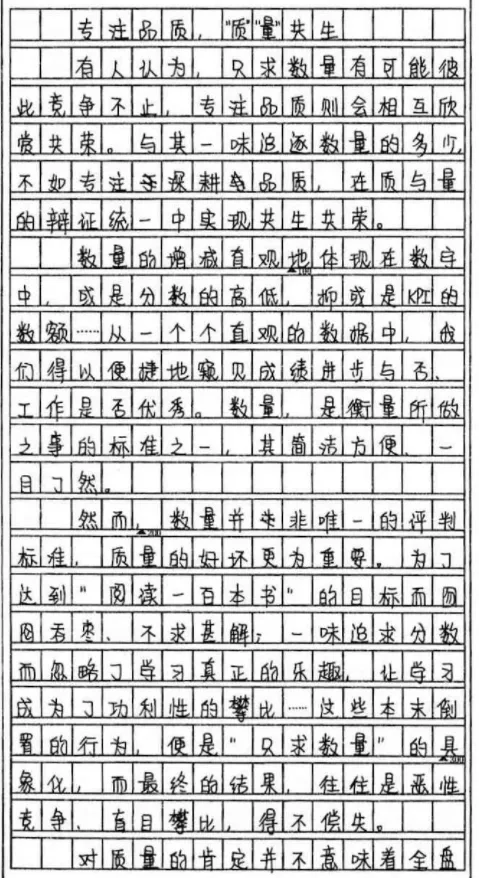 专注品质，"质""量"共生
有人认为，只求数量有可能彼
此竞争不止，专注品质则会相互欣
赏共荣。与其一味追逐数量的多少，
不如专注于深耕品质，在质与量
的辩证统一中实现共生共荣。
数量的增减直观地体现在数字
中，或是分数的高低，抑或是KPI的
数额……从一个个直观的数据中，我
们得以便捷地窥见成绩进步与否、
工作是否优秀。数量，是衡量所做
之事的标准之一，其简洁方便、一
目了然。
然而，数量并非唯一的评判
标准，质量的好坏更为重要。为了
达到"阅读一百本书"的目标而囫
囵吞枣、不求甚解；一味追求分数
而忽略了学习真正的乐趣，让学习
成为了功利性的攀比……这些本末倒
置的行为，便是"只求数量"的具
象化，而最终的结果，往往是恶性
竞争、盲目攀比，得不偿失。
对质量的肯定并不意味着全盘